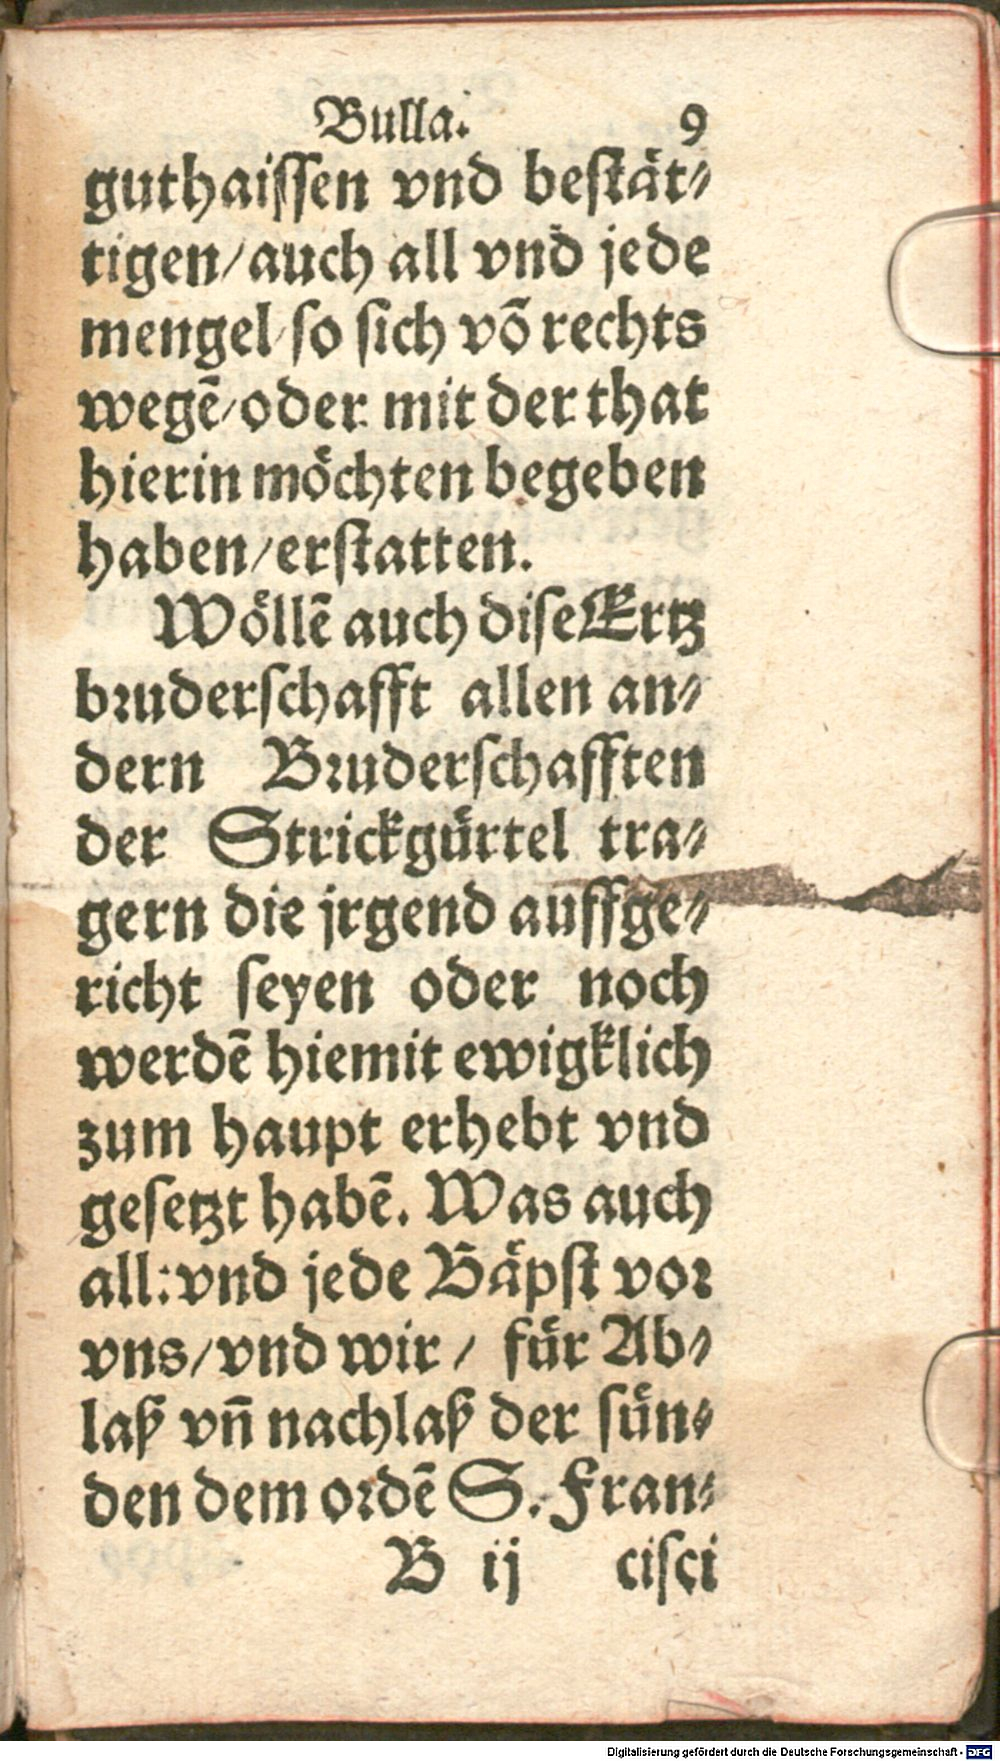 Bulla. 9
guthaiſſen vnd beſtät⸗
tigen/auch all vnd jede
mengel/ſo ſich võ rechts
wegē/oder mit der that
hierin möchten begeben
haben/erſtatten.
Wöllē auch diſe Ertz
bruderſchafft allen an⸗
dern Bruderſchafften
der Strickgürtel tra⸗
gern die jrgend auffge⸗
richt ſeyen oder noch
werdē hiemit ewigklich
zum haupt erhebt vnd
geſetzt habē. Was auch
all: vnd jede Bäpſt vor
vns/vnd wir/ für Ab⸗
laß vñ nachlaß der ſün⸗
den dem ordē S. Fran⸗
B ij ciſci
Digitalisierung gefördert durch die Deutsche Forschungsgemeinschaft - DFG